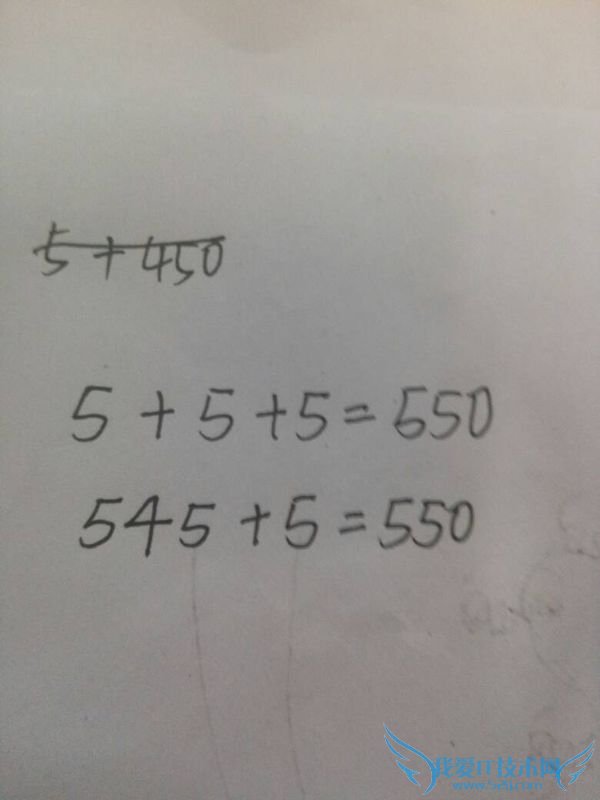 5+450
5+5+5=550
545+5=550
我爱IT技术网
www.52ij.com